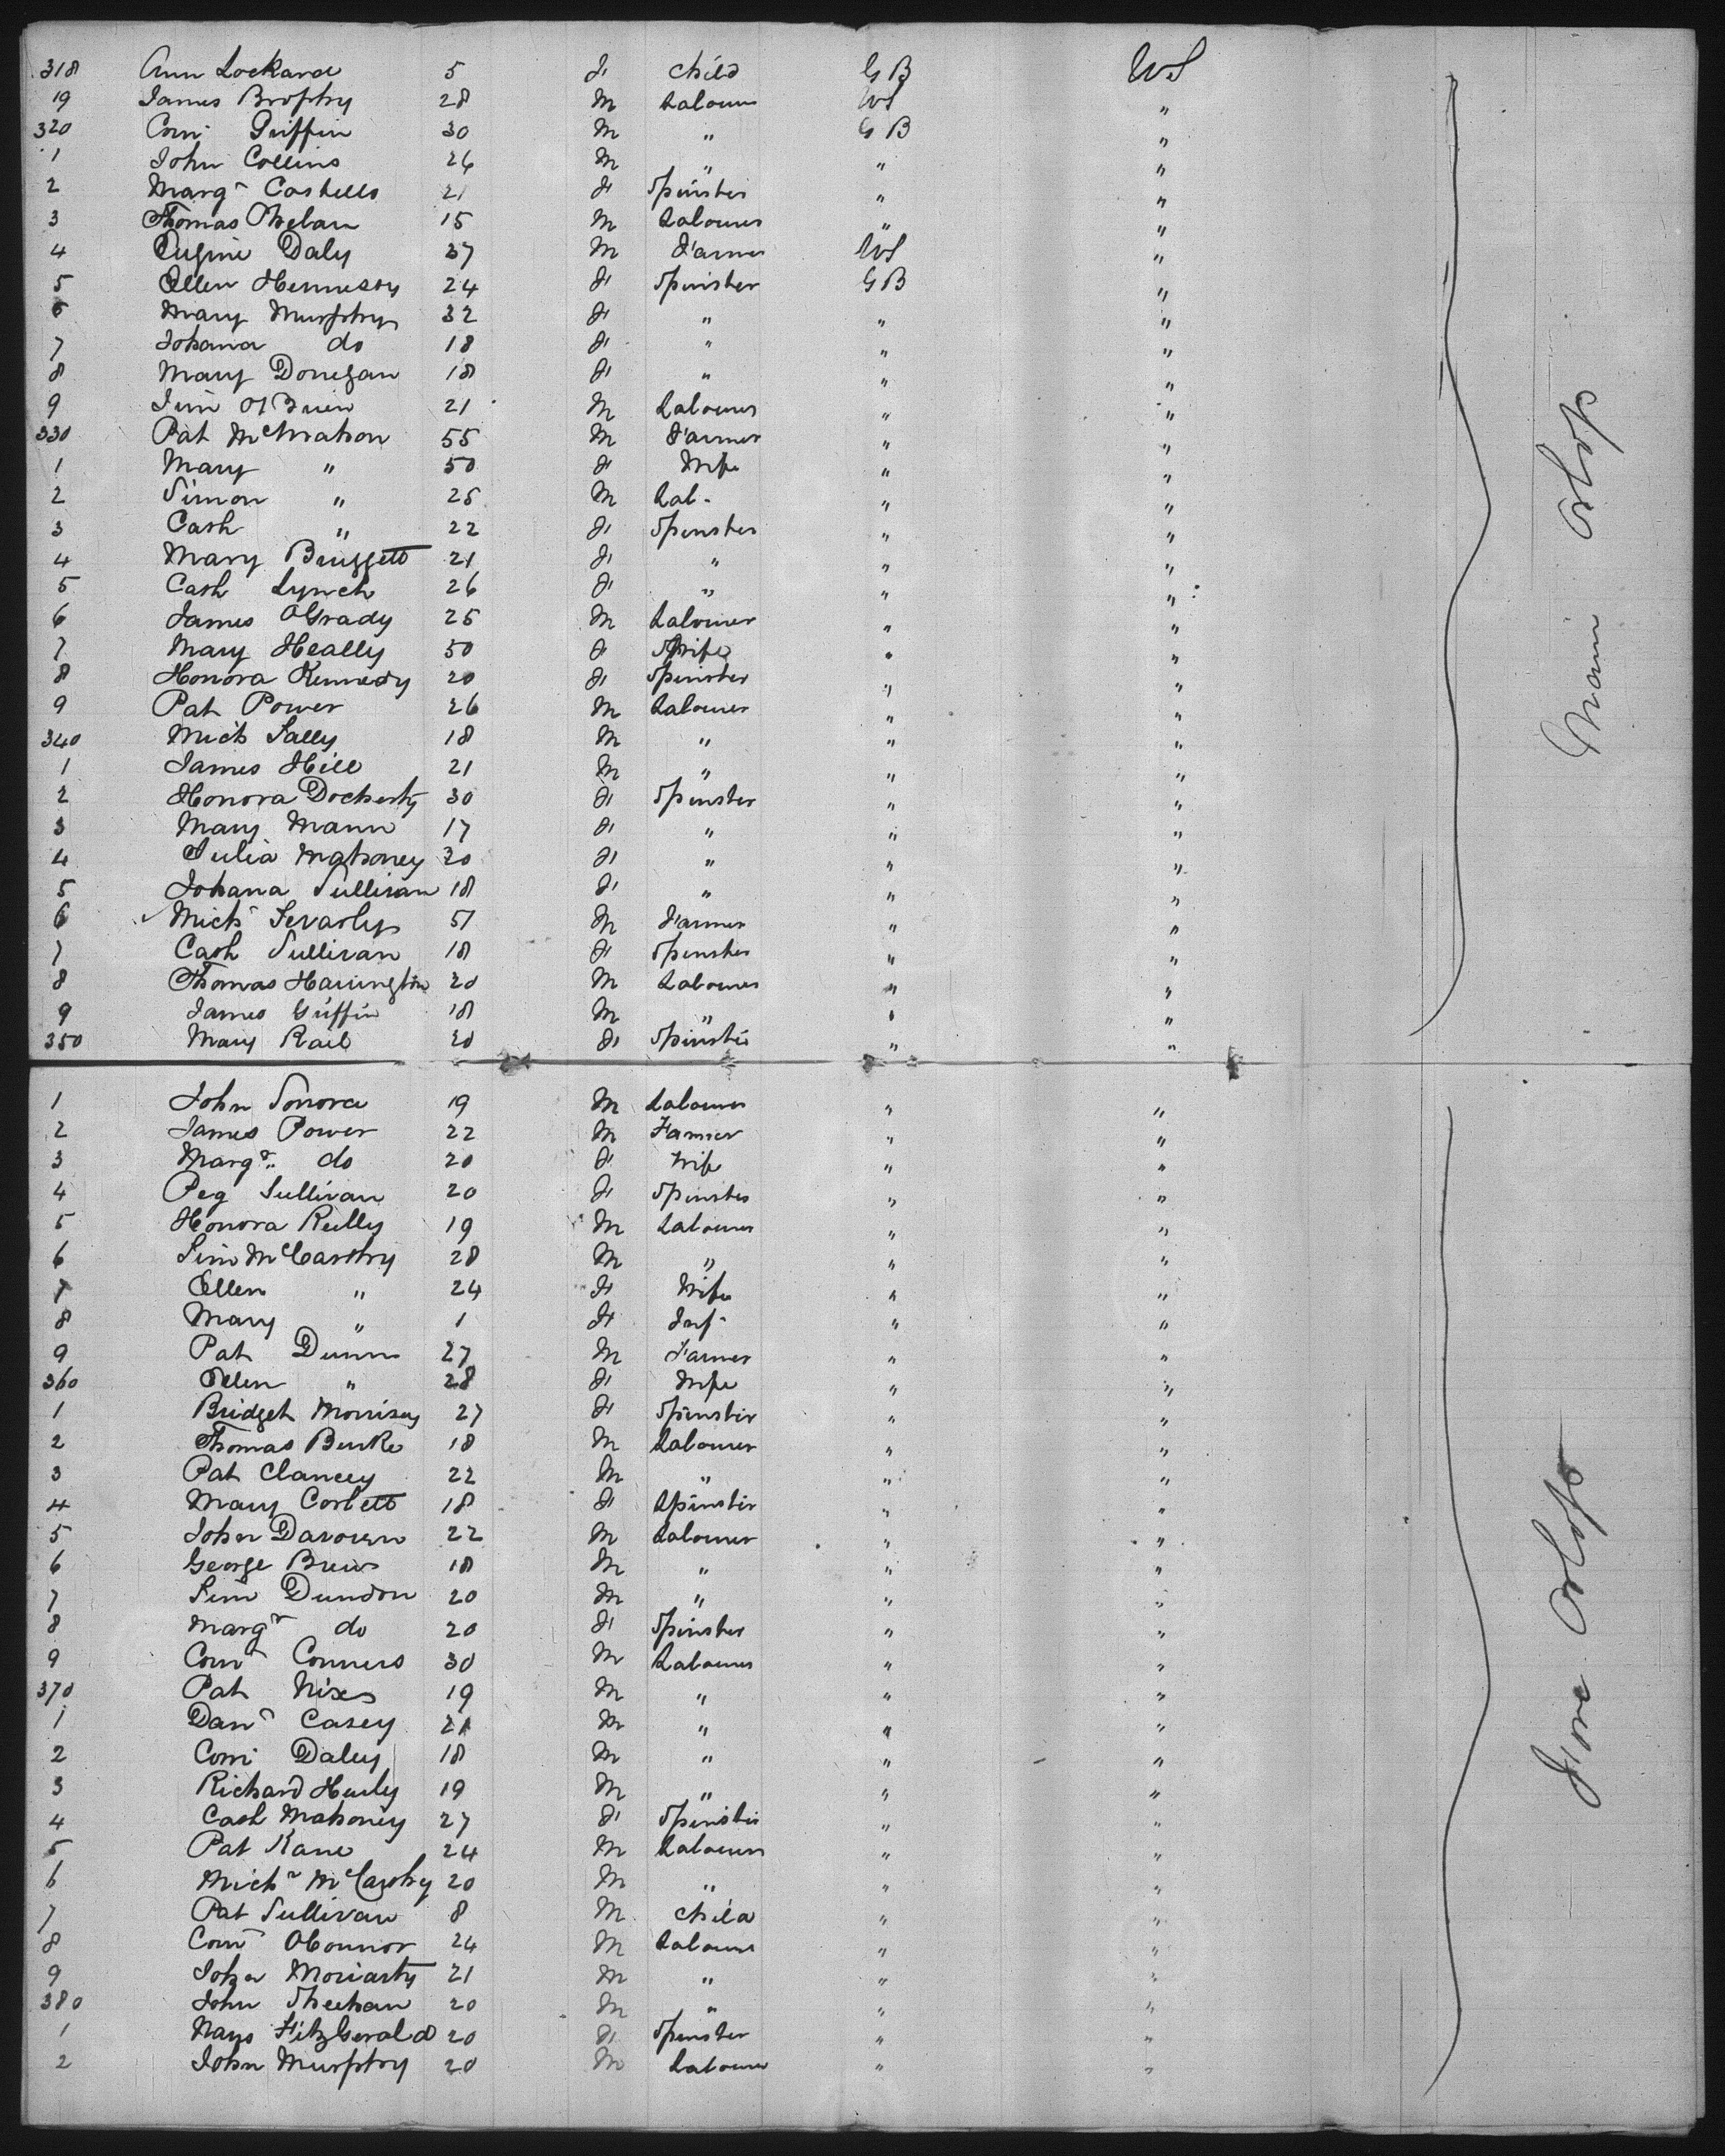 318 Ann Lockard 5 F Child GB US
19 James Brophy 28 M Labourer US "
320 Corn. Griffin 30 M " GB "
1 John Collins 26 M " " "
2 Margt Costello 21 F Spinster " "
3 Thomas Phelan 15 M Labourer " "
4 Eugine Daly 37 M Farmer US "
5 Ellen Hennessy 24 F Spinster GB "
6 Mary Murphy 32 F " " "
7 Johana do 18 F " " "
8 Mary Donegan 18 F " " "
9 Jim O'Brien 21 M Labourer " "
330 Pat McMahon 55 M Farmer " "
1 Mary " 50 F Wife " "
2 Simon " 25 M Lab. " "
3 Cath " 22 F Spinster " "
4 Mary 21 F " " "
5 Cath Lynch 26 F " " "
6 James OGrady 25 M Labourer " "
7 Mary Heally 50 F Wife " "
8 Honora Kennedy 20 F Spinster " "
9 Pat Power 26 M Labourer " "
340 Mich Lally 18 M " " "
1 James Hill 21 M " " "
2 Honora Docherty 30 F Spinster " "
3 Mary Mann 17 F " " "
4 Julia Mahoney 20 F " " "
5 Johana Sullivan 18 F " " "
6 Mich 51 M Farmer " "
7 Cath Sullivan 18 F Spinster " "
8 Thomas Harrington 20 M Labourer " "
9 James Griffin 18 M " " "
350 Mary Rail 20 F Spinster " "
Main
1 John 19 M Labourer " "
2 James Power 22 M Farmer " "
3 Margt do 20 F Wife " "
4 Peg Sullivan 20 F Spinster " "
5 Honora Reilly 19 M Labourer " "
6 Jim McCarthy 28 M " " "
7 Ellen " 24 F Wife " "
8 Mary " 1 F Inf. " "
9 Pat Dunn 27 M Farmer " "
360 Ellen " 28 F Wife " "
1 Bridget Morrisey 27 F Spinster " "
2 Thomas Burke 18 M Labourer " "
3 Pat Clancey 22 M " " "
4 Mary Corbett 18 F Spinster " "
5 John Davoren 22 M Labourer " "
6 George Brew 18 M " " "
7 Jim Dundon 20 M " " "
8 Margt do 20 F Spinster " "
9 Corn Conners 30 M Labourer " "
370 Pat Nixes 19 M " " "
1 Danl Casey 21 M " " "
2 Corn Daley 18 M " " "
3 Richard Hurly 19 M " " "
4 Cath Mahoney 27 F Spinster " "
5 Pat Kane 24 M Labourer " "
6 Michl McCarthy 20 M " " "
7 Pat Sullivan 8 M Child " "
8 Corn OConnor 24 M Labourer " "
9 John Moriarty 21 M " " "
380 John Sheehan 20 M " " "
1 FitzGerald 20 F Spinster " "
2 John Murphy 20 M Labourer " "
Fore